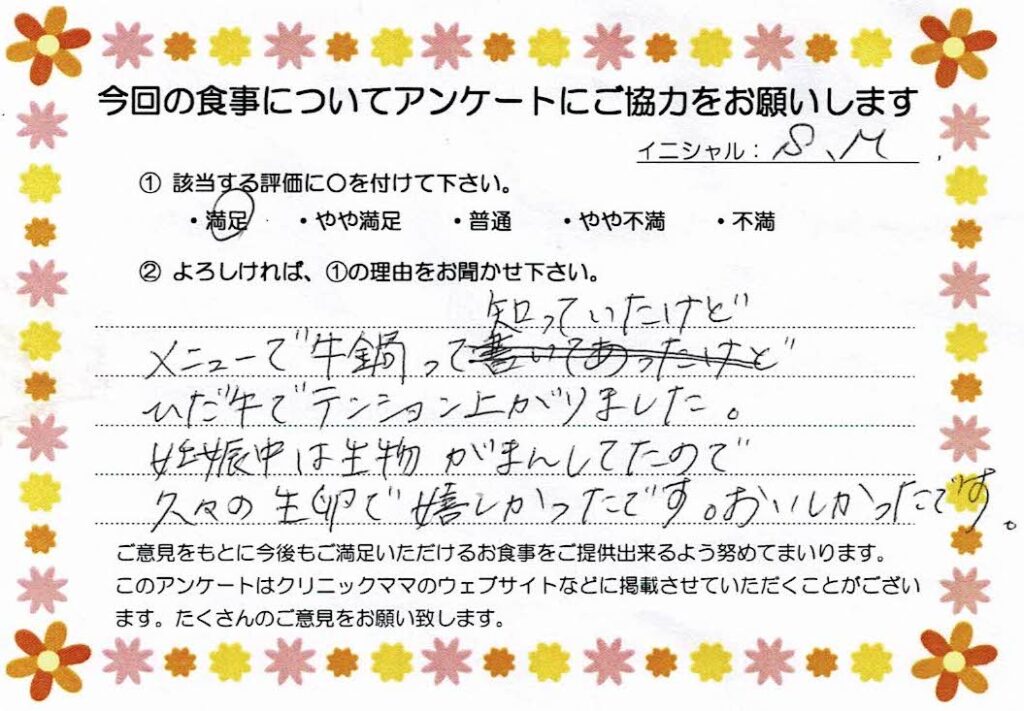 今回の食事についてアンケートにご協力をお願いします
イニシャル： S、M
① 該当する評価に〇を付けて下さい。
・満足 ・やや満足 ・普通 ・やや不満 ・不満
② よろしければ、①の理由をお聞かせ下さい。
知っていたけど
メニューで牛鍋って書いてあったけど
ひだ牛でテンション上がりました。
妊娠中は生物がまんしてたので
久々の生卵で嬉しかったです。おいしかったです。
ご意見をもとに今後もご満足いただけるお食事をご提供出来るよう努めてまいります。
このアンケートはクリニックママのウェブサイトなどに掲載させていただくことがござい
ます。たくさんのご意見をお願い致します。